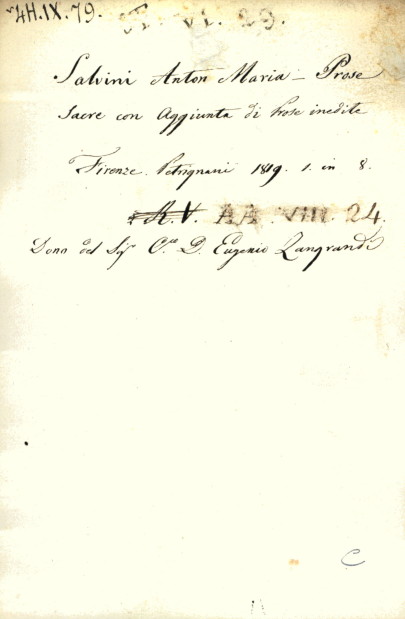 4H.IX.79.
VI. 29.
Salvini Anton Maria - Prose
sacre con Aggiunta di Prose inedite
Firenze. Petrignani 1819. 1. in 8.
R.V. AA. VIII. 24.
Dono del Sigr C.te D. Eugenio Zangrandi
C